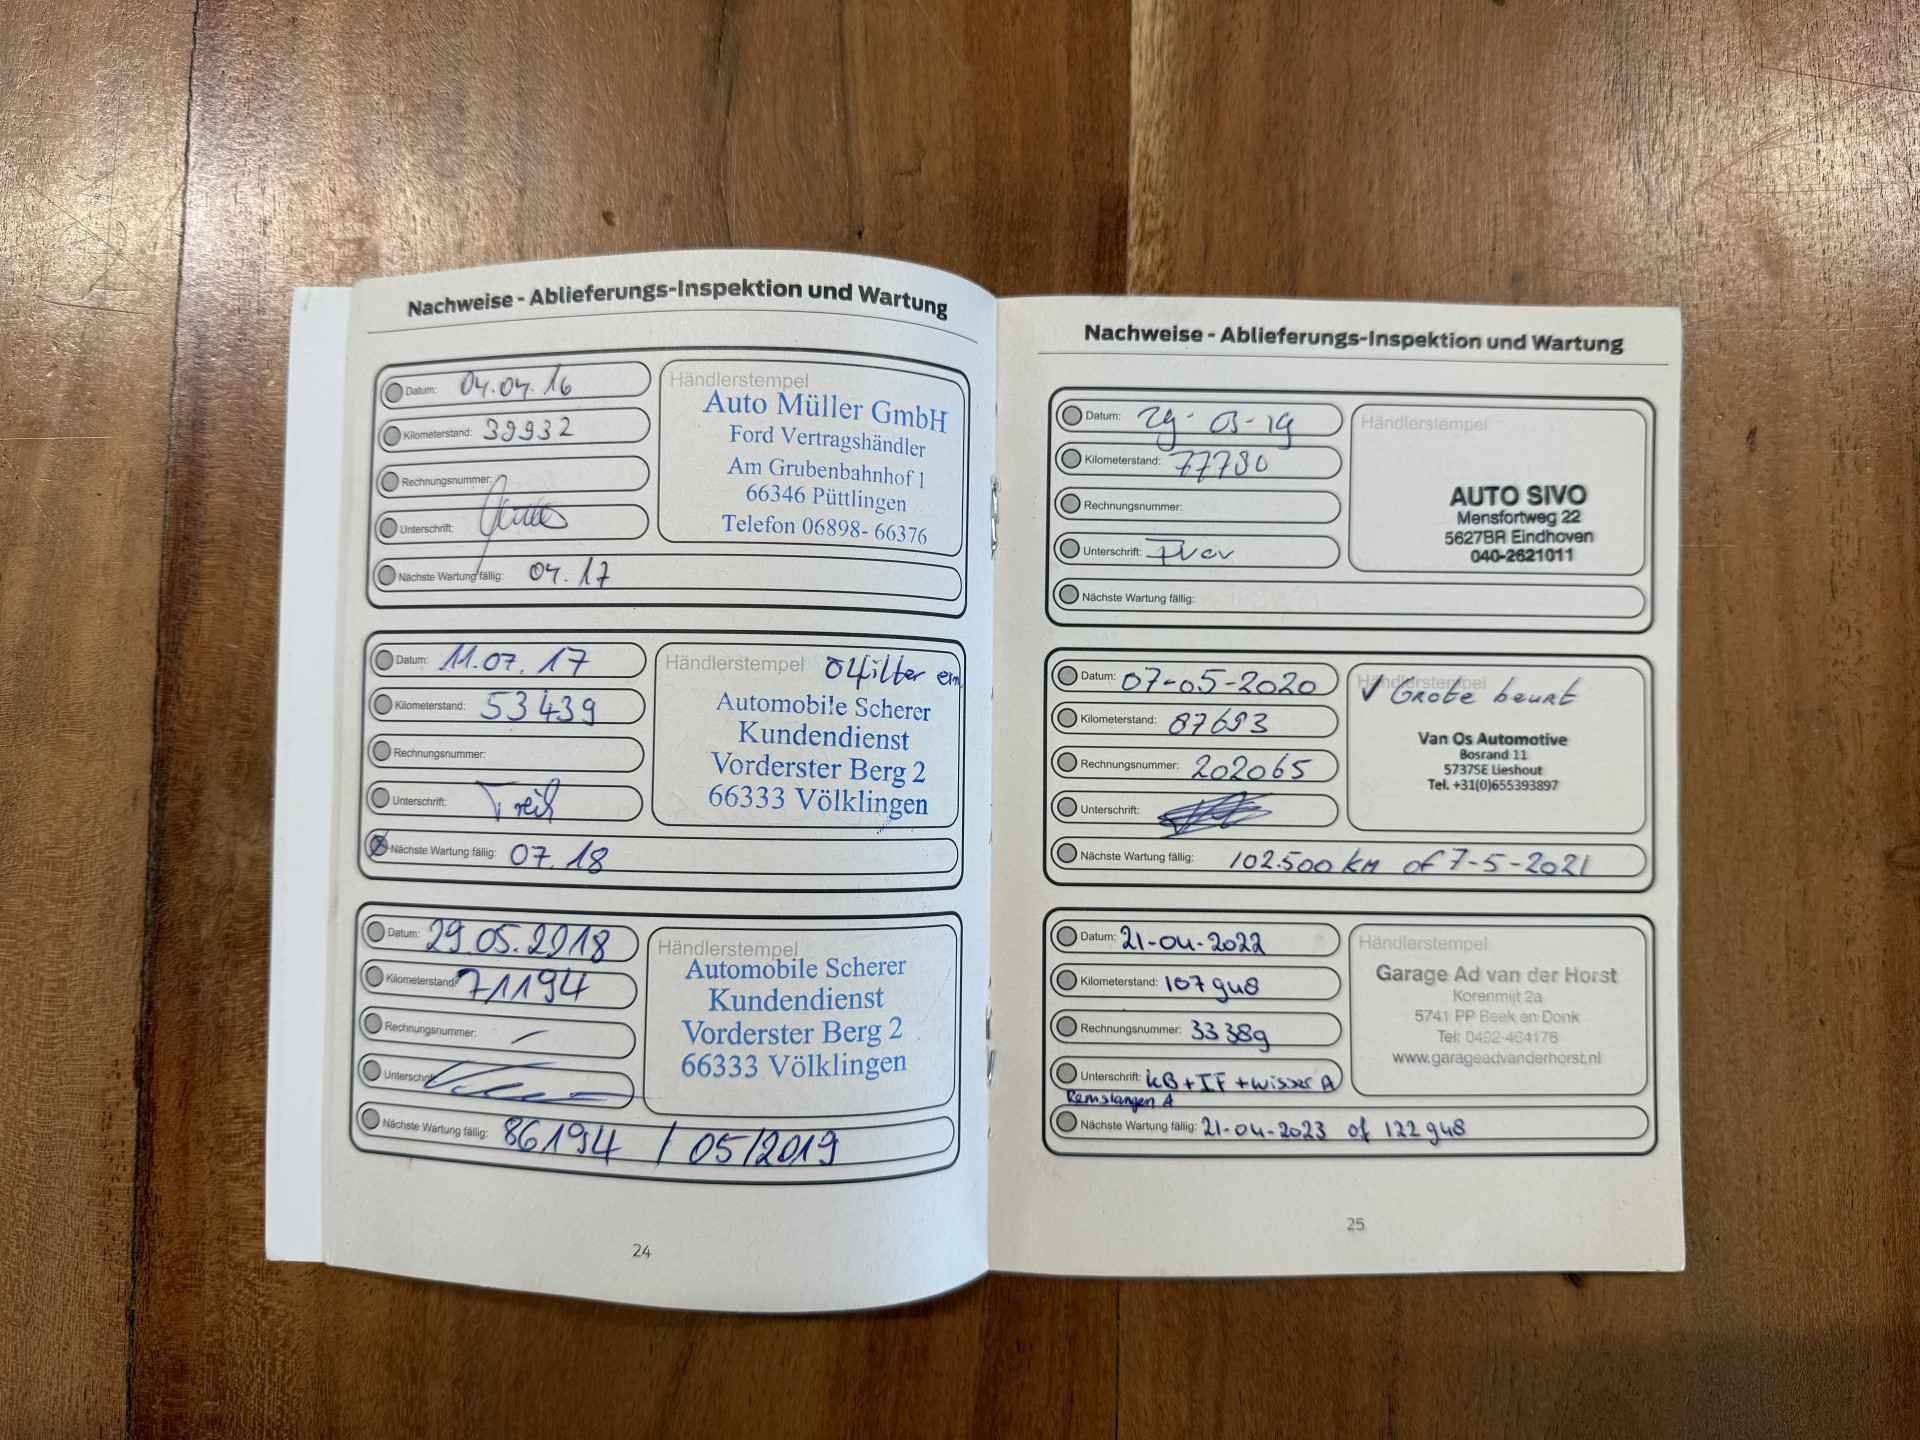 Nachweise - Ablieferungs-Inspektion und Wartung
Datum: 04.04.16
Kilometerstand: 39932
Rechnungsnummer:
Unterschrift:
Nächste Wartung fällig: 04.17
Händlerstempel
Auto Müller GmbH
Ford Vertragshändler
Am Grubenbahnhof 1
66346 Püttlingen
Telefon 06898- 66376
Datum: 11.07.17
Kilometerstand: 53439
Rechnungsnummer:
Unterschrift:
Nächste Wartung fällig: 07.18
Händlerstempel
Automobile Scherer
Kundendienst
Vorderster Berg 2
66333 Völklingen
Datum: 29.05.2018
Kilometerstand: 71194
Rechnungsnummer: –
Unterschrift:
Nächste Wartung fällig: 86194 / 05/2019
Händlerstempel
Automobile Scherer
Kundendienst
Vorderster Berg 2
66333 Völklingen
24
Nachweise - Ablieferungs-Inspektion und Wartung
Datum: 29-03-19
Kilometerstand: 77790
Rechnungsnummer:
Unterschrift:
Nächste Wartung fällig:
Händlerstempel
AUTO SIVO
Mensfortweg 22
5627BR Eindhoven
040-2621011
Datum: 07-05-2020
Kilometerstand: 87693
Rechnungsnummer: 202065
Unterschrift:
Nächste Wartung fällig: 102.500 km of 7-5-2021
Händlerstempel
✓ Grote beurt
Van Os Automotive
Bosrand 11
5737SE Lieshout
Tel. +31(0)655393897
Datum: 21-04-2022
Kilometerstand: 107948
Rechnungsnummer: 33389
Unterschrift: KB + IF + wisser A
Remslangen A
Nächste Wartung fällig: 21-04-2023 of 122948
Händlerstempel
Garage Ad van der Horst
Korenmijt 2a
5741 PP Beek en Donk
Tel: 0492-464176
www.garageadvanderhorst.nl
25